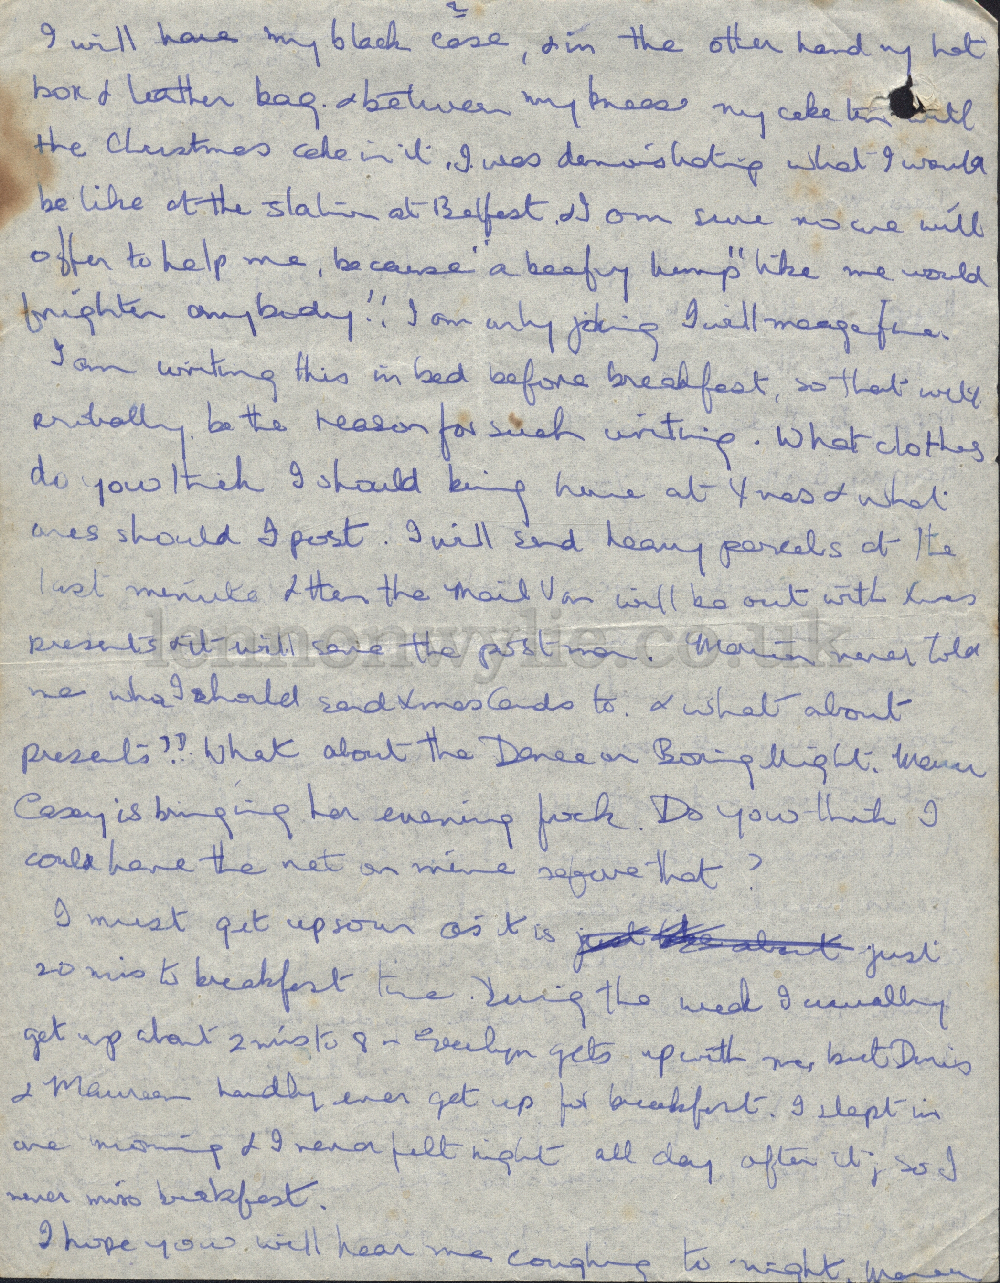 2
I will have my black case, & in the other hand my hat
box & leather bag. & between my knees my cake tin with
the Christmas cake in it. I was demonstrating what I would
be like at the station at Belfast, & I am sure no one will
offer to help me, because "a beefy hump" like me would
frighten anybody!! I am only joking I will manage fine.
I am writing this in bed before breakfast, so that will
probably be the reason for such writing. What clothes
do you think I should bring home at Xmas & what
ones should I post. I will send heavy parcels at the
last minute & then the Mail Van will be out with Xmas
presents & it will save the postman. Marion never told
me who I should send Xmas Cards to. & what about
presents?? What about the Dance on Boxing Night.
Casey is bringing her evening frock. Do you think I
could have the net on mine before that?
I must get up soon as it is just the about just
20 mins to breakfast time. During the week I usually
get up about 2 mins to 8 - Evelyn gets up with me, but Doris
& Maureen hardly ever get up for breakfast. I slept in
one morning & I never felt right all day after it, so I
never miss breakfast.
I hope you will hear me coughing to night
lennonwylie.co.uk